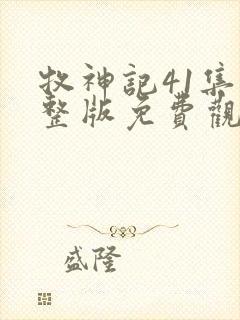 牧神記41集
整版免費觀
盛隆